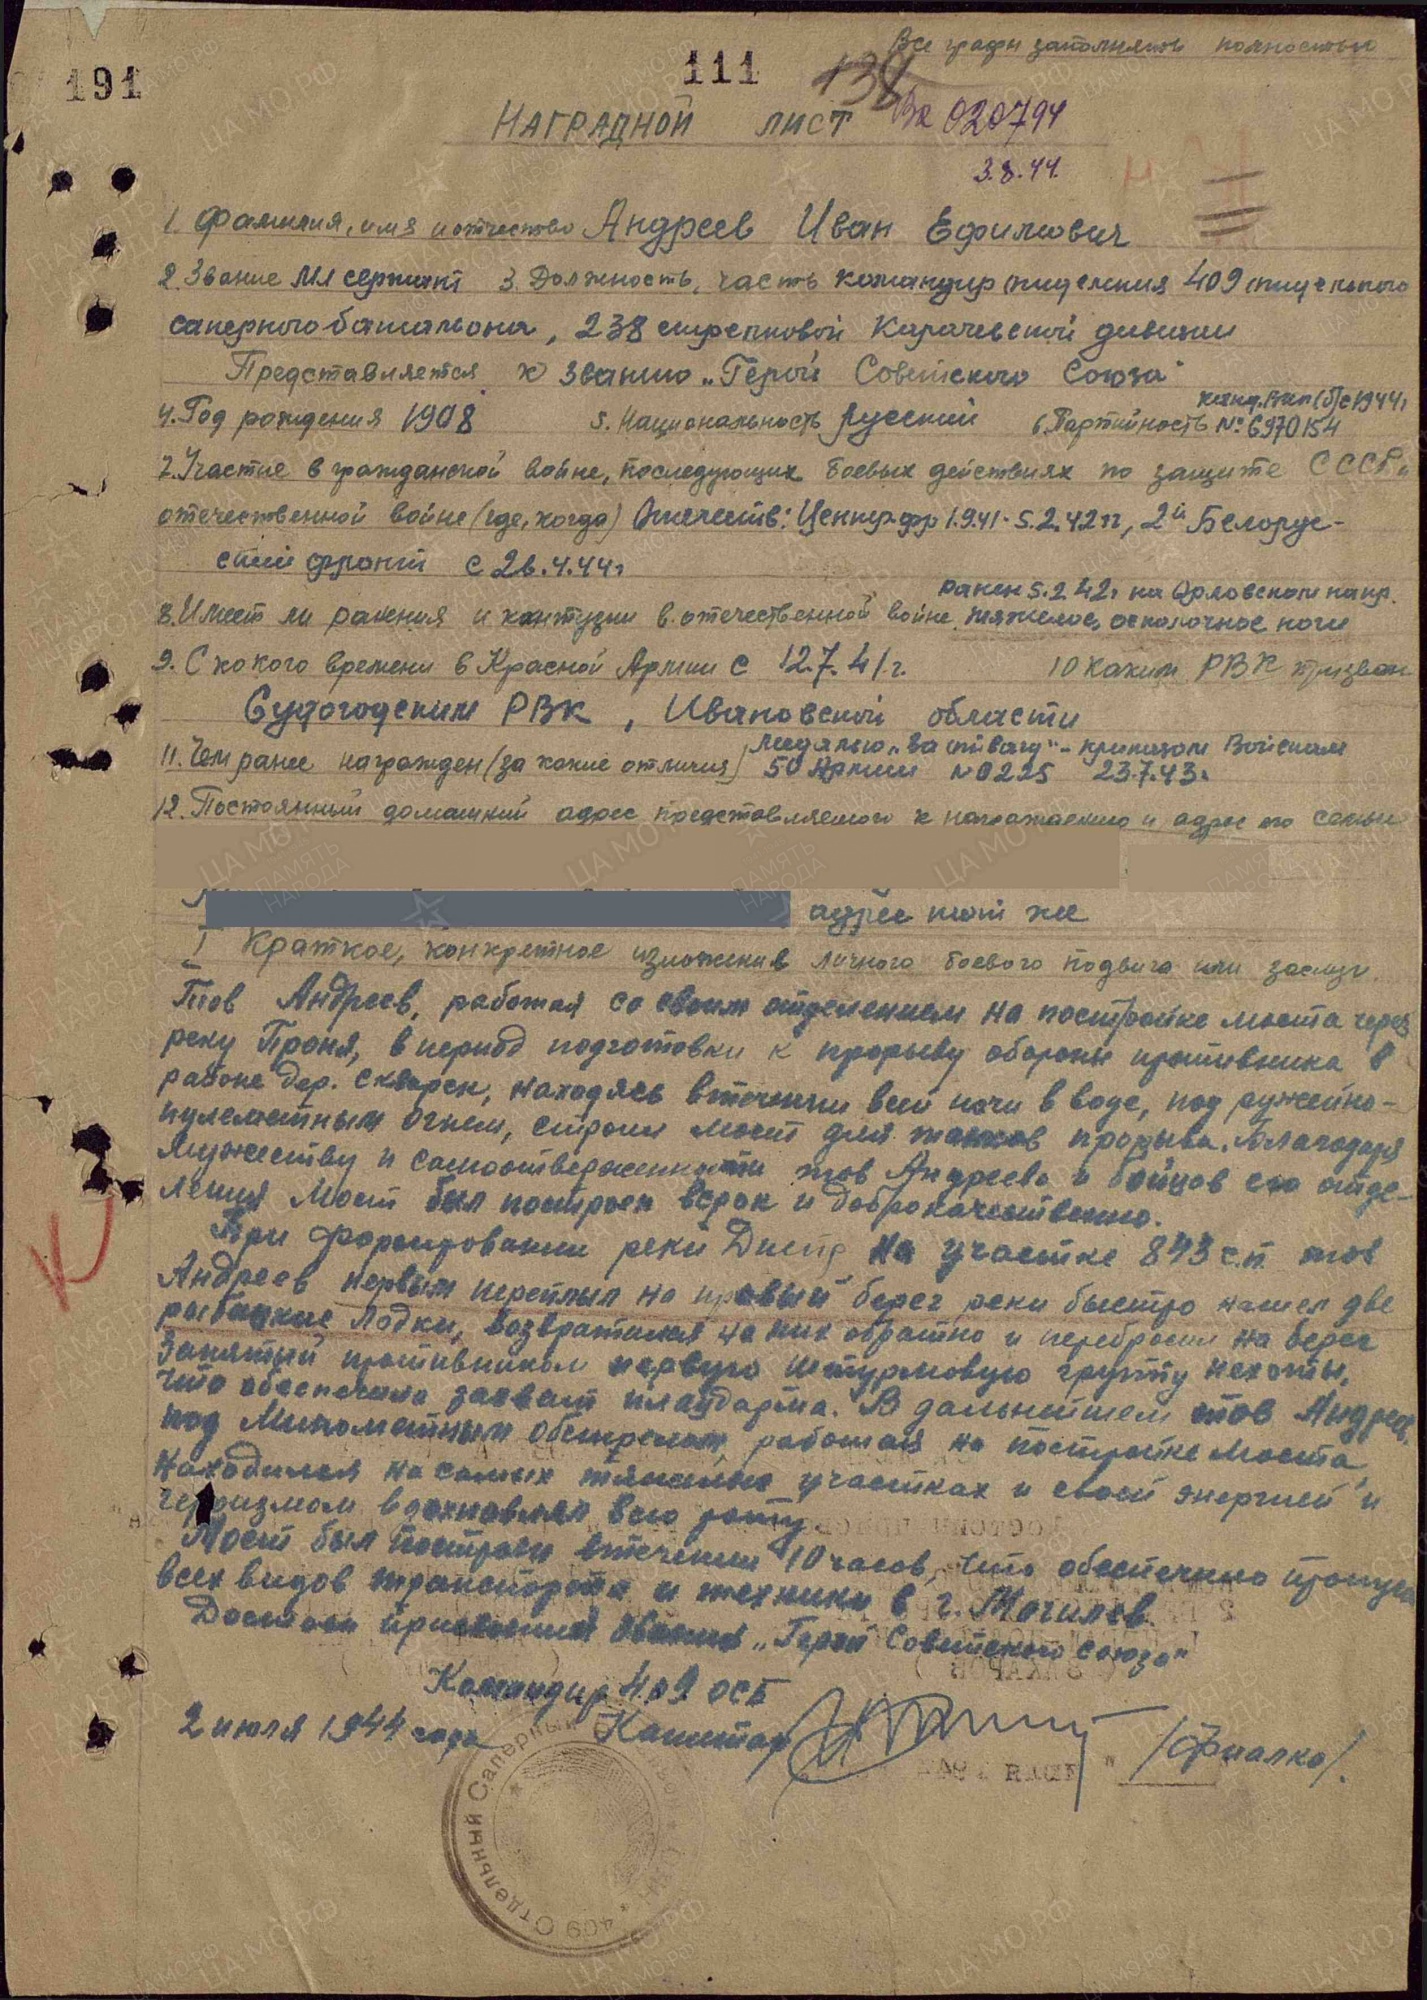 Все графы заполнять полностью
191
111
138
НАГРАДНОЙ ЛИСТ Вх 020794
3.8.44.
1. Фамилия, имя и отчество Андреев Иван Ефимович
2. Звание Мл сержант 3. Должность, часть командир отделения 409 отдельного
саперного батальона, 238 стрелковой Карачевской дивизии
Представляется к званию „Герой Советского Союза"
канд. ВКП(б) с 1944г
4. Год рождения 1908 5. Национальность русский 6. Партийность № 6970154
7. Участие в гражданской войне, последующих боевых действиях по защите СССР и
отечественной войне (где, когда) Отечеств: Центр.фр 1.9.41-5.2.42 гг, 2й Белорус-
ский фронт с 26.4.44г
ранен 5.2.42г на Орловском напр.
8. Имеет ли ранения и контузии в отечественной войне. тяжелое, осколочное ноги
9. С какого времени в Красной Армии с 12.7.41г. 10 каким РВК призван
Судогодским РВК, Ивановской области
медалью „За отвагу" - приказом Войскам
11. Чем ранее награжден (за какие отличия) 50 Армии №0225 23.7.43г
12. Постоянный домашний адрес представляемого к награждению и адрес его семьи
адрес тот же
I Краткое, конкретное изложение личного боевого подвига или заслуг.
Тов Андреев, работая со своим отделением на постройке моста через
реку Проня, в период подготовки к прорыву обороны противника в
районе дер. находясь втечении всей ночи в воде, под ружейно-
пулеметным огнем, строил мост для танков прорыва. Благодаря
мужеству и самоотверженности тов Андреева и бойцов его отде-
ления Мост был построен всрок и доброкачественно.
При форсировании реки Днепр на участке 843 с.п. тов
Андреев первым переплыл на правый берег реки быстро нашел две
рыбацкие лодки, возвратился на них обратно и перебросил на берег
занятый противником первую штурмовую группу пехоты,
что обеспечило захват плацдарма. В дальнейшем тов Андреев,
под Минометным обстрелом, работая на постройке моста,
находился на самых тяжелых участках и своей энергией и
героизмом вдохновлял всю роту
Мост был построен втечении 10 часов, что обеспечило пропуск
всех видов транспорта и техники в г. Могилев.
Достоин присвоения звания „Герой Советского союза"
Командир 409 ОСБ
2 июля 1944 года Капитан /Фиалко/.
409 Отдельный Саперный